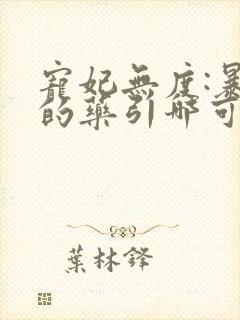 寵妃無度:暴
的藥引哪可
葉林鋒